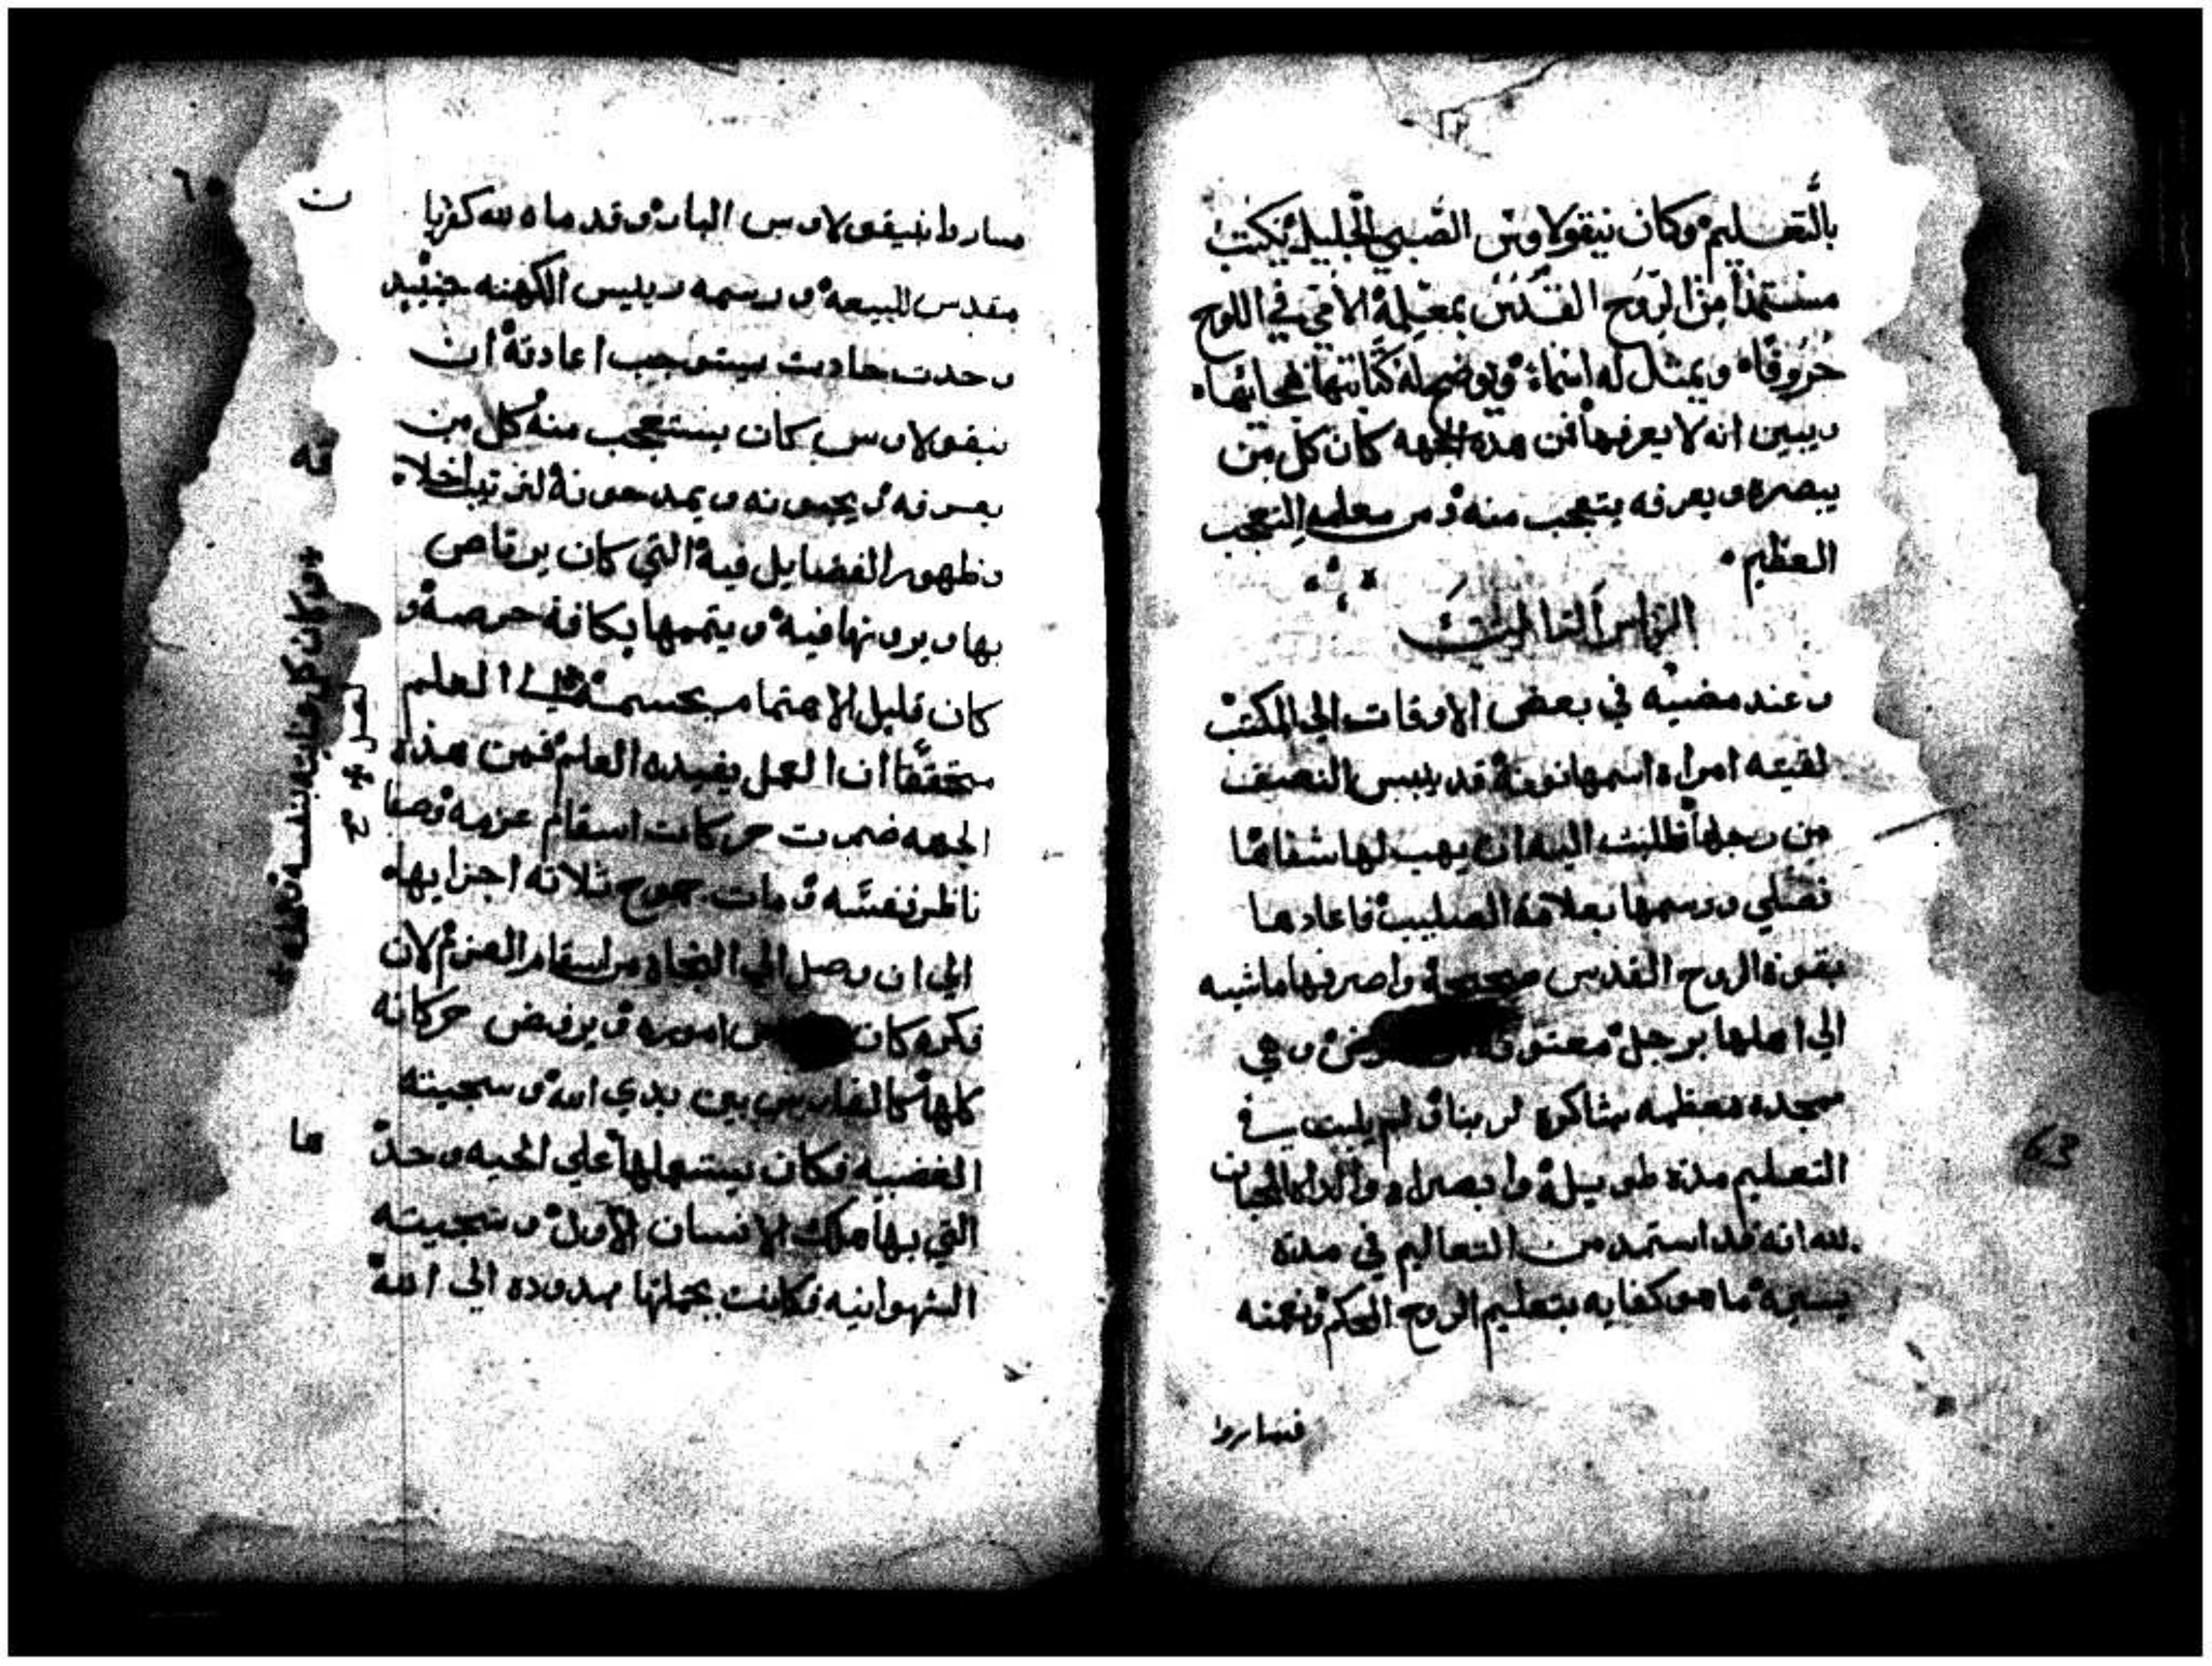 بالتعليم وكان نيقولاوس الصبي الجليل يكتب
مستمدا من الروح القدس بمعلمه الامي في اللوح
حروفاه ويمثل له اسماء ويوضح له كتابتها هجايهاه
ويبين انه لا يعرفها فمن هده الجهه كان كل من
يبصره ويعرفه يتعجب منه ومن معلمه التعجب
العظيم
الراس التالت
وعند مضيه في بعض الاوقات الي المكتب
لقيته امراه اسمها نونة قد يبس النصف
من رجلها فطلبت اليه ان يهب لها شفاها
فصلي ورسمها بعلامة الصليب فاعادها
بقوة الروح القدس صحيحة واصرفها ماشيه
الي اهلها برجل وهي
ممجده معظمه شاكره لربنا ولم يلبت في
التعليم مدة طويله وابصراه والداه المحبان
لله انه قد استمد من التعاليم في مدة
يسيرة ما هو كفايه بتعليم الروح الحكم ونعمته
فساروا
٦٠
فساروا بنيقولاوس البار وقدماه لله كفربا
مقدس للبيعه ورسمه رييس الكهنه حينيد
وحدت حادت يستوجب اعادته ان
نيقولاوس كان يستعجب منه كل من
يعرفه ويحبونه ويمدحونه لترتيب اخلاه
وظهور الفضايل فيه التي كان يرتاض
بها ويرونها فيه ويتممها بكافة حرصه و
كان قليل الاهتمام بجسمه الي العلم
متحققا ان العمل يفيده العلم فمن هده
الجهه ضمرت حركات اسقام عزمه وصفا
ناظر نفسه ومات جموح تلاته اجزايهاه
الي ان وصل الي النجاه من اسقام العزم لان
فكره كان اموره ويرفض حركاته
كلها كالفارس بين يدي الله وسجيته
الغضبيه فكان يستعملها علي الحيه وحد
التي بها هلك الانسان الاول وسجيته
الشهوانيه فكانت بجملتها ممدوده الي الله
ن
قه
وكان كل عنايته بنفسه
ها
63